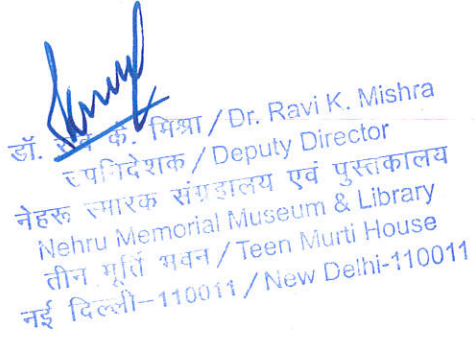 डॉ. रवि के. मिश्रा / Dr. Ravi K. Mishra
उपनिदेशक / Deputy Director
नेहरू स्मारक संग्रहालय एवं पुस्तकालय
Nehru Memorial Museum & Library
तीन मूर्ति भवन / Teen Murti House
नई दिल्ली–110011 / New Delhi-110011